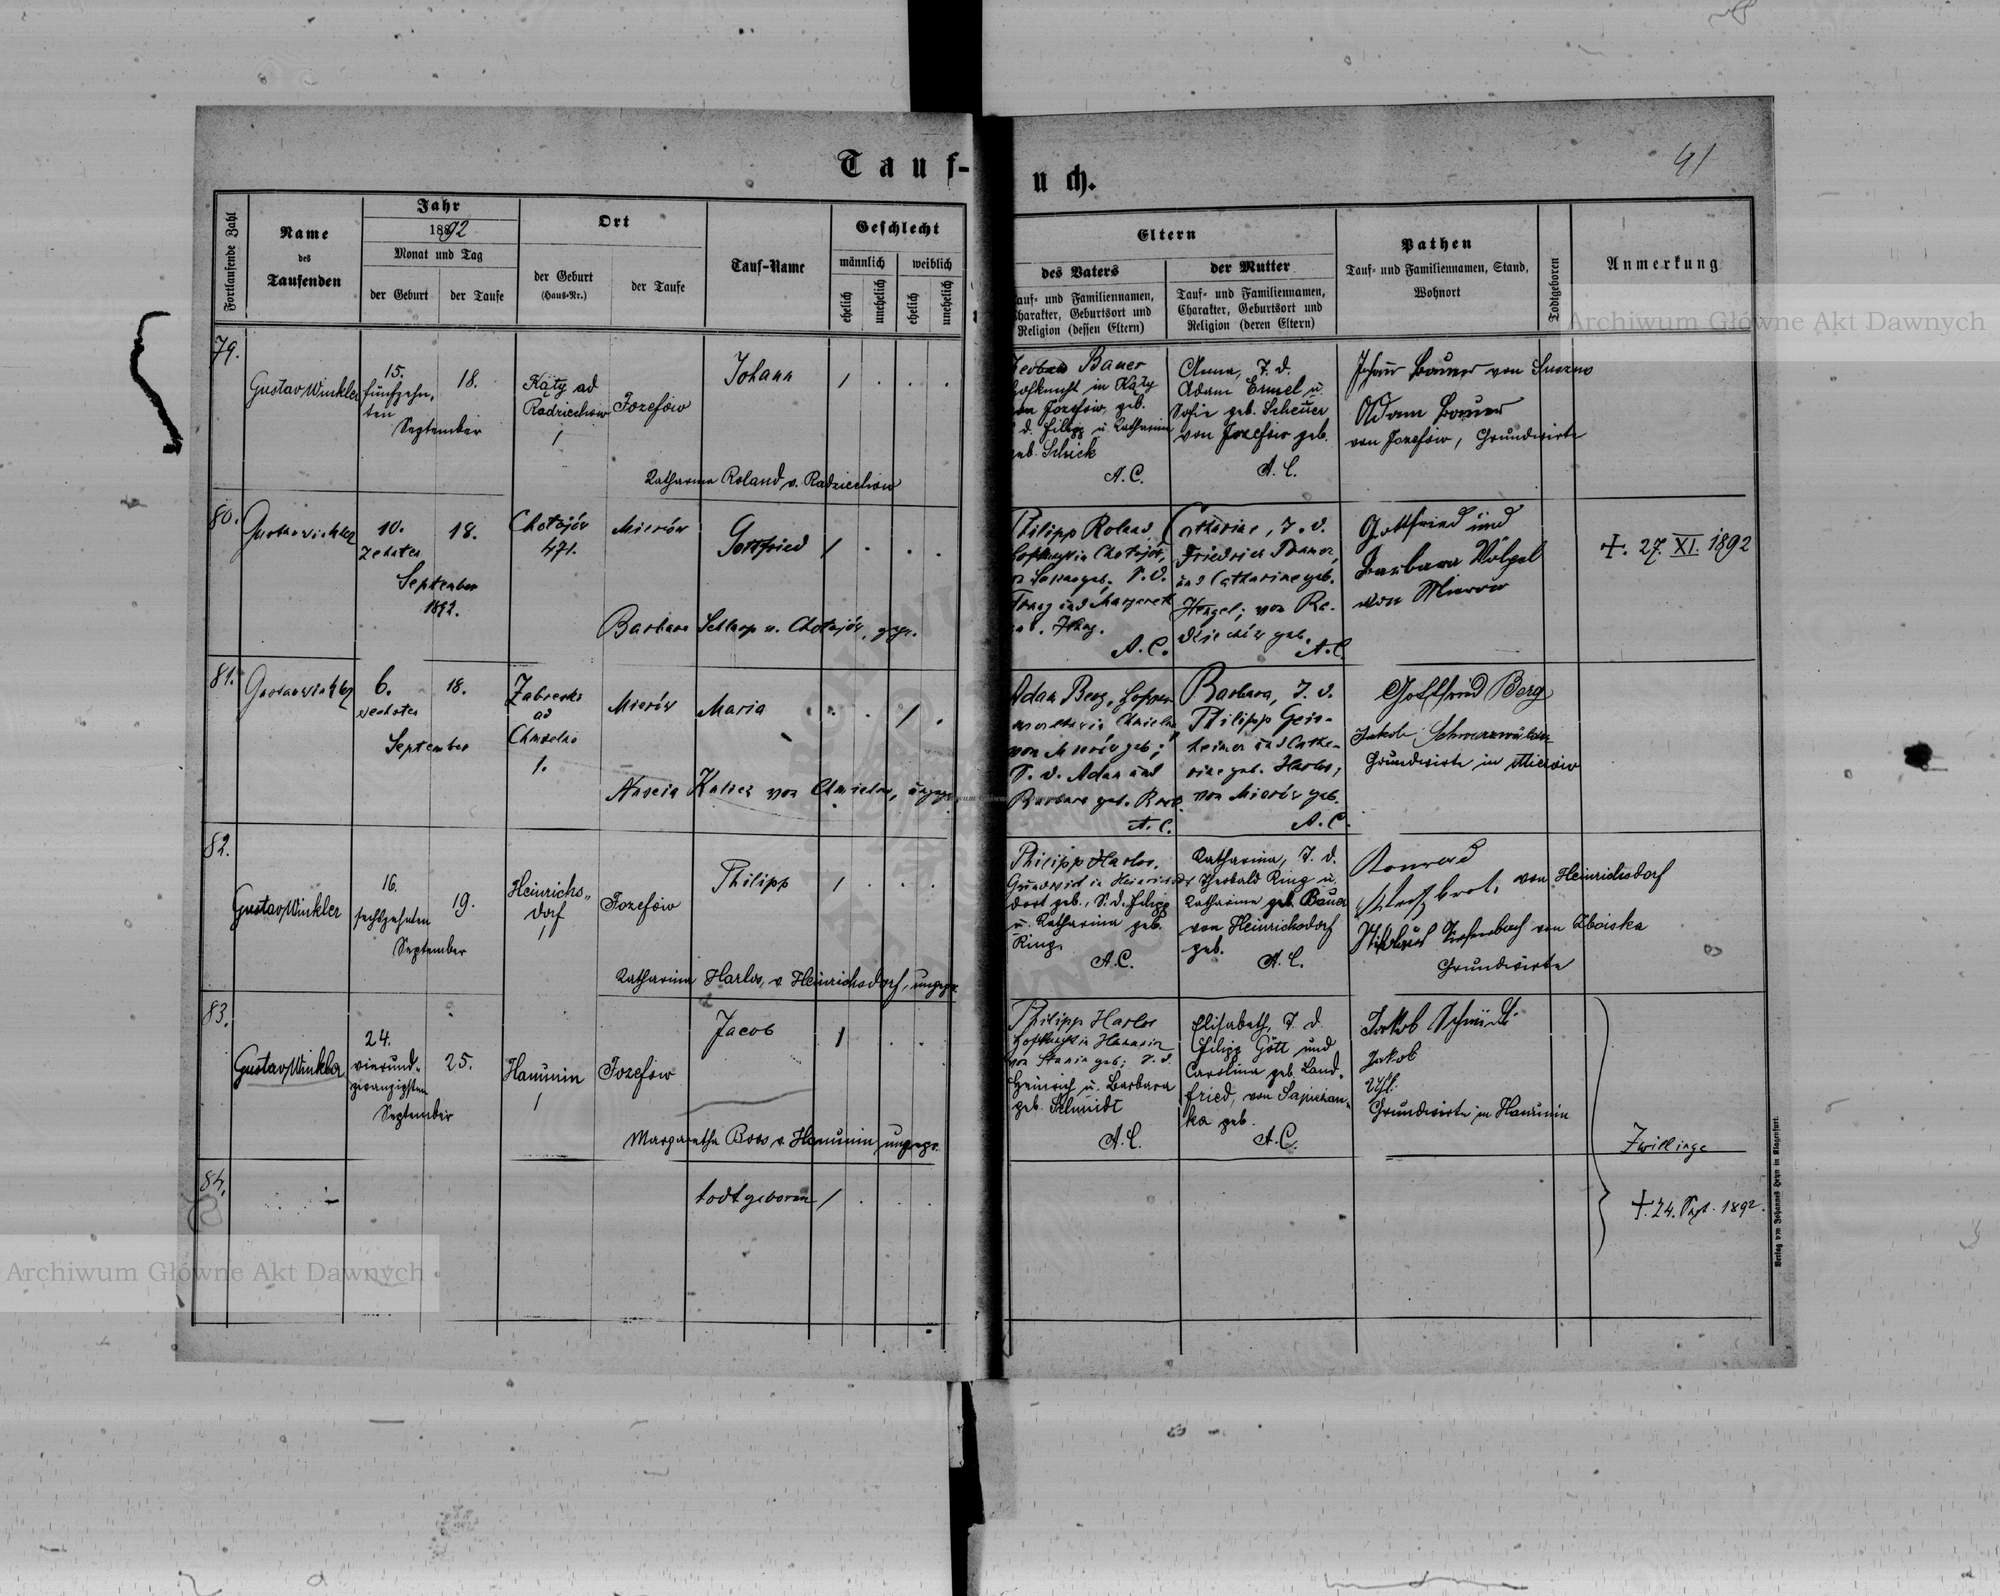 Tauf-
uch.
41
Fortlaufende Zahl
Name
des
Taufenden
Jahr
1892
Monat und Tag
der Geburt
der Taufe
Ort
der Geburt
(Haus-Nr.)
der Taufe
Tauf-Name
Geschlecht
männlich
weiblich
ehelich
unehelich
ehelich
unehelich
Eltern
des Vaters
auf- und Familiennamen,
harakter, Geburtsort und
Religion (dessen Eltern)
der Mutter
Tauf- und Familiennamen,
Charakter, Geburtsort und
Religion (deren Eltern)
Pathen
Tauf- und Familiennamen, Stand,
Wohnort
Todtgeboren
Anmerkung
79.
Gustav Winkler
15.
fünfzehn-
ten
September
18.
Kąty ad
Radziechow
1
Jozefów
Johann
1
Katharina Roland v. Radziechow
Bauer
hofknecht in Kąty
Jozefów, geb.
d. Filipp u. Katharina
geb. Schick
A.C.
Anna, T. d.
Adam Emmel u.
Sofie geb. Scheuer
von Jozefów geb.
A.C.
Johann Bauer von Suszno
Adam Bauer
von Jozefów, Grundwirte
80.
Gustav Winkler
10.
Zehnten
September
1892.
18.
Chołojów
471.
Mierów
Gottfried
1
Barbara Schlarp v. Chołojów, gepr.
Philipp Roland,
in Chołojów,
geb., S. d.
Franz und Margareth
A.C.
Catharine, T. d.
Friedrich
und Catharine geb.
von Ra-
dziechów geb.
A.C.
Gottfried und
Barbara Völpel
von Mierow
+. 27. XI. 1892
81.
Gustav Winkler
6.
sechsten
September
18.
ad
Chmielno
1.
Mierów
Maria
1
von Chmielno, ungepr.
Adam Berg,
von Mierów geb.;
S. d. Adam und
Barbara geb.
A.C.
Barbara, T. d.
Philipp Geis-
heimer und Catha-
rine geb. Harlos;
von Mierów geb.
A.C.
Gottfried Berg
Jakob Schwarzwälder
Grundwirte in Mierów
82.
Gustav Winkler
16.
sechszehnten
September
19.
Heinrichs-
dorf
1
Jozefów
Philipp
1
Katharina Harlos, v. Heinrichsdorf, ungepr.
Philipp Harlos,
Grundwirt in Heinrichs
dorf geb., S. d. Filipp
u. Katharina geb.
Ring.
A.C.
Katharina, T. d.
Theobald Ring u.
Katharina geb. Bauer
von Heinrichsdorf
geb.
A.C.
Konrad
von Heinrichsdorf
von Zboiska
Grundwirte
83.
Gustav Winkler
24.
vierund-
zwanzigsten
September
25.
Hanunin
1
Jozefów
Jacob
1
Margaretha Boos v. Hanunin ungepr.
Philipp Harlos
Hofknecht in Hanunin
von Stanin geb; S. d.
Heinrich u. Barbara
geb. Schmidt
A.C.
Elisabeth, T. d.
Filipp Gött und
Carolina geb. Land-
fried, von Sapiezan-
ka geb.
A.C.
Jakob Schmidt
Jakob
Grundwirte in Hanunin
Zwillinge
84.
todtgeboren
1
+. 24. Sept. 1892.
Verlag von Johannes Heyn in Klagenfurt.
Archiwum Główne Akt Dawnych
Archiwum Główne Akt Dawnych